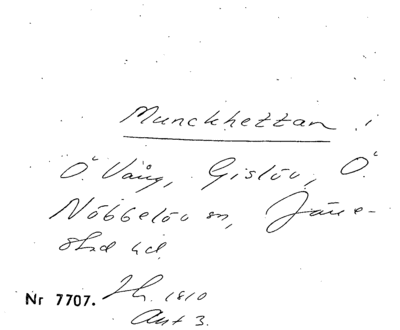 Munckhettan i
Ö. Vång, Gislöv, Ö.
Nöbbelöv sn, Järre-
stad hd
Nr 7707. Hh. 1810
Ant 3.